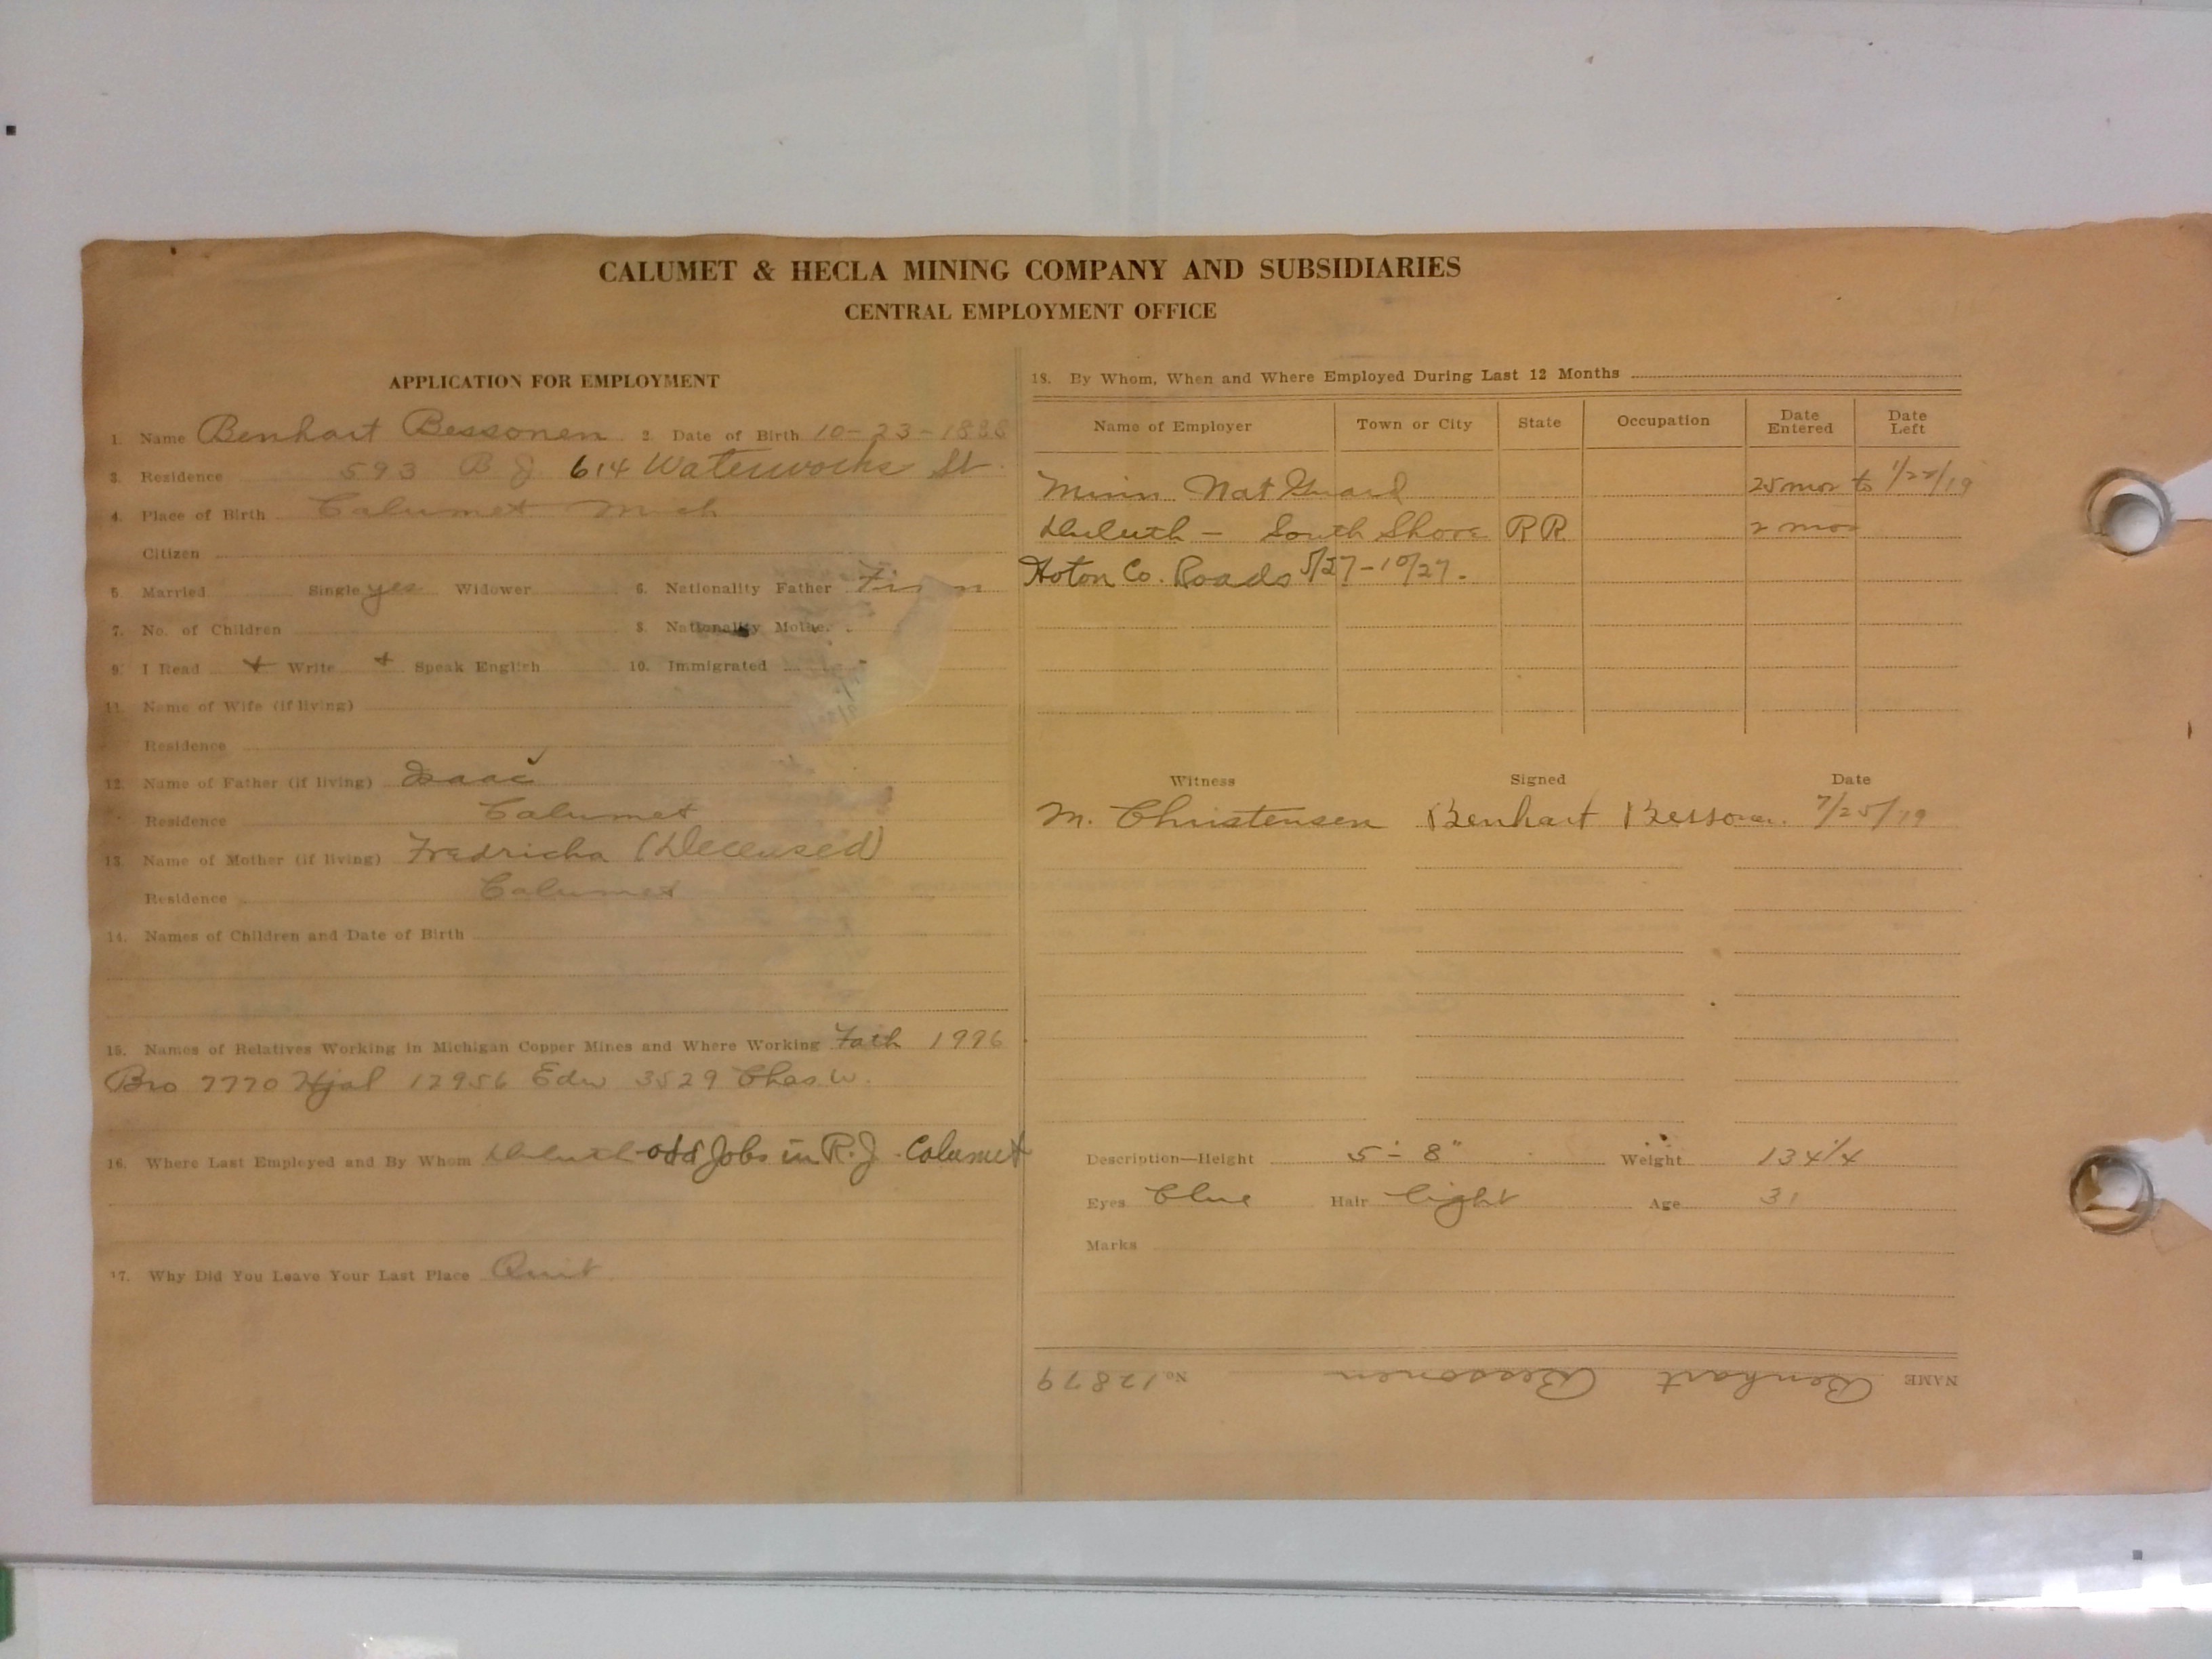 CALUMET & HECLA MINING COMPANY AND SUBSIDIARIES
CENTRAL EMPLOYMENT OFFICE
APPLICATION FOR EMPLOYMENT
1. Name Benhart Bessonen 2. Date of Birth 10-23-1888
3. Residence 593 B J 614 Waterworks St.
4. Place of Birth Calumet Mich
Citizen
5 Married Single yes Widower 6. Nationality Father Finn
7. No. of Children 8. Nationality Mother
9. I Read + Write + Speak English 10. Immigrated
11. Name of Wife (if living)
Residence
12. Name of Father (if living) Isaac
Residence Calumet
13. Name of Mother (if living) Fredricka (Deceased)
Residence Calumet
14. Names of Children and Date of Birth
15. Names of Relatives Working in Michigan Copper Mines and Where Working Fath 1996
Bro 7770 Hjal 12956 Edw 3529 Chas W.
16. Where Last Employed and By Whom Duluth odd Jobs in R.J. Calumet
17. Why Did You Leave Your Last Place Quit
18. By Whom, When and Where Employed During Last 12 Months
Name of Employer Town or City State Occupation Date Entered Date Left
Minn Nat Guard 25 mos to 1/22/19
Duluth - South Shore RR 2 mos
Hoton Co. Roads 5/27-10/27.
Witness Signed Date
M. Christensen Benhart Bessonen 7/25/19
Description—Height 5-8" Weight 134 1/4
Eyes blue Hair light Age 31
Marks
NAME Benhart Bessonen No. 12879